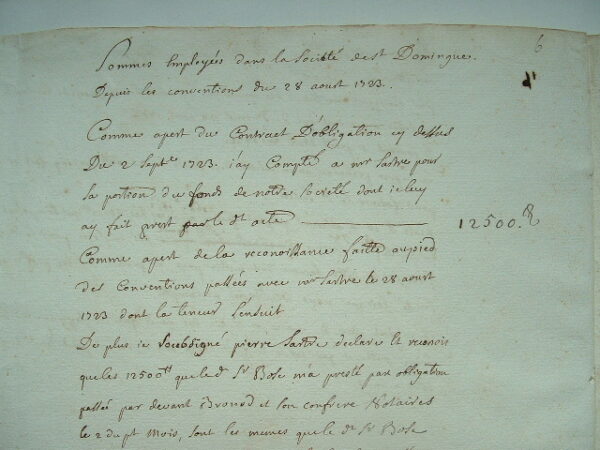 6
Sommes Employées dans la Société de St Domingue.
Depuis les conventions du 28 aoust 1723.
Comme apert du Contract D'obligation cy dessus
Du 2 Septbre 1723. j'ay Compté a mr Sartre pour
la portion du fonds de notre Societé dont je luy
ay fait prest par le dt acte 12500.tt
Comme apert de la reconoissance faitte au pied
des Conventions passées avec mr Sartre le 28 aoust
1723 dont la teneur S'ensuit
De plus je Soubsigné pierre Sartre declare Et reconois
que les 12500tt que le d. Sr Bosc m'a presté par obligation
passée par devant et son confrere Notaires
le 2 du pt Mois, sont les memes que le dt Sr Bosc